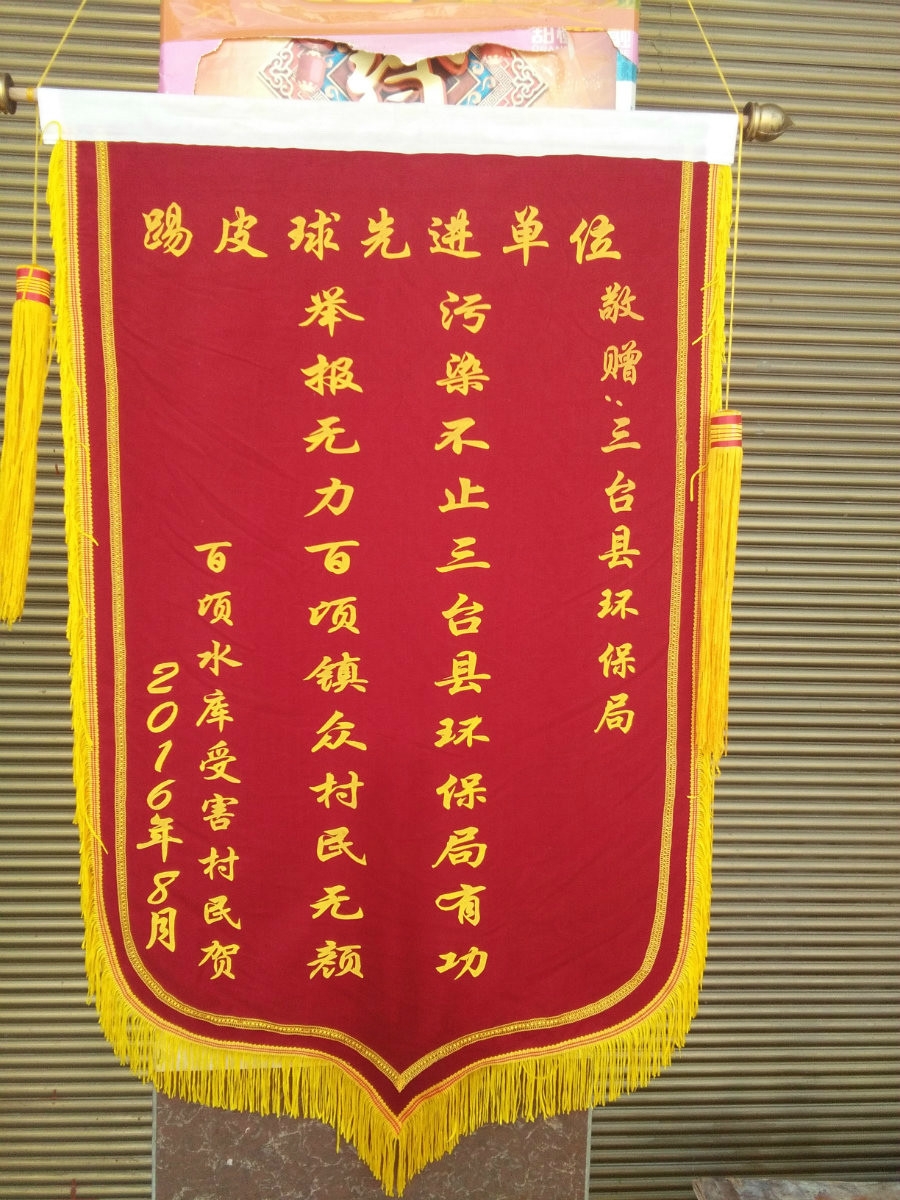 踢皮球先进单位
敬赠:三台县环保局
污染不止三台县环保局有功
举报无力百顷镇众村民无颜
百顷水库受害村民贺
2016年8月